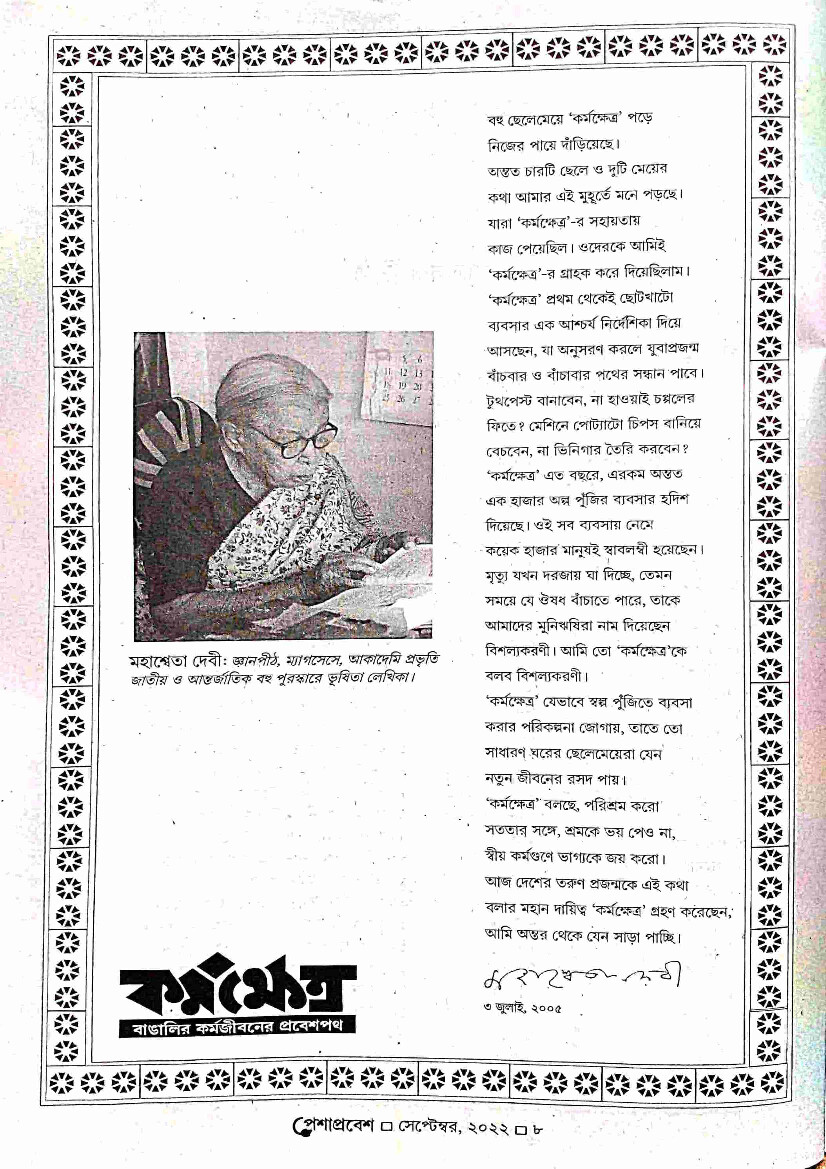 বহু ছেলেমেয়ে ‘কর্মক্ষেত্র’ পড়ে
নিজের পায়ে দাঁড়িয়েছে।
অন্তত চারটি ছেলে ও দুটি মেয়ের
কথা আমার এই মুহূর্তে মনে পড়ছে।
যারা ‘কর্মক্ষেত্র’-র সহায়তায়
কাজ পেয়েছিল। ওদেরকে আমিই
‘কর্মক্ষেত্র’-র গ্রাহক করে দিয়েছিলাম।
‘কর্মক্ষেত্র’ প্রথম থেকেই ছোটখাটো
ব্যবসার এক আশ্চর্য নির্দেশিকা দিয়ে
আসছেন, যা অনুসরণ করলে যুবাপ্রজন্ম
বাঁচবার ও বাঁচাবার পথের সন্ধান পাবে।
টুথপেস্ট বানাবেন, না হাওয়াই চপ্পলের
ফিতে? মেশিনে পোট্যাটো চিপস বানিয়ে
বেচবেন, না ভিনিগার তৈরি করবেন?
‘কর্মক্ষেত্র’ এত বছরে, এরকম অন্তত
এক হাজার অল্প পুঁজির ব্যবসার হদিশ
দিয়েছে। ওই সব ব্যবসায় নেমে
কয়েক হাজার মানুষই স্বাবলম্বী হয়েছেন।
মৃত্যু যখন দরজায় ঘা দিচ্ছে, তেমন
সময়ে যে ঔষধ বাঁচাতে পারে, তাকে
আমাদের মুনিঋষিরা নাম দিয়েছেন
বিশল্যকরণী। আমি তো ‘কর্মক্ষেত্র’কে
বলব বিশল্যকরণী।
‘কর্মক্ষেত্র’ যেভাবে স্বল্প পুঁজিতে ব্যবসা
করার পরিকল্পনা জোগায়, তাতে তো
সাধারণ ঘরের ছেলেমেয়েরা যেন
নতুন জীবনের রসদ পায়।
‘কর্মক্ষেত্র’ বলছে, পরিশ্রম করো
সততার সঙ্গে, শ্রমকে ভয় পেও না,
স্বীয় কর্মগুণে ভাগ্যকে জয় করো।
আজ দেশের তরুণ প্রজন্মকে এই কথা
বলার মহান দায়িত্ব ‘কর্মক্ষেত্র’ গ্রহণ করেছেন,
আমি অন্তর থেকে যেন সাড়া পাচ্ছি।
মহাশ্বেতা দেবী
৩ জুলাই, ২০০৫
5 6
11 12 13
18 19 20
25 26 27
মহাশ্বেতা দেবী: জ্ঞানপীঠ, ম্যাগসেসে, আকাদেমি প্রভৃতি
জাতীয় ও আন্তর্জাতিক বহু পুরস্কারে ভূষিতা লেখিকা।
কর্মক্ষেত্র
বাঙালির কর্মজীবনের প্রবেশপথ
পেশাপ্রবেশ □ সেপ্টেম্বর, ২০২২ □ ৮